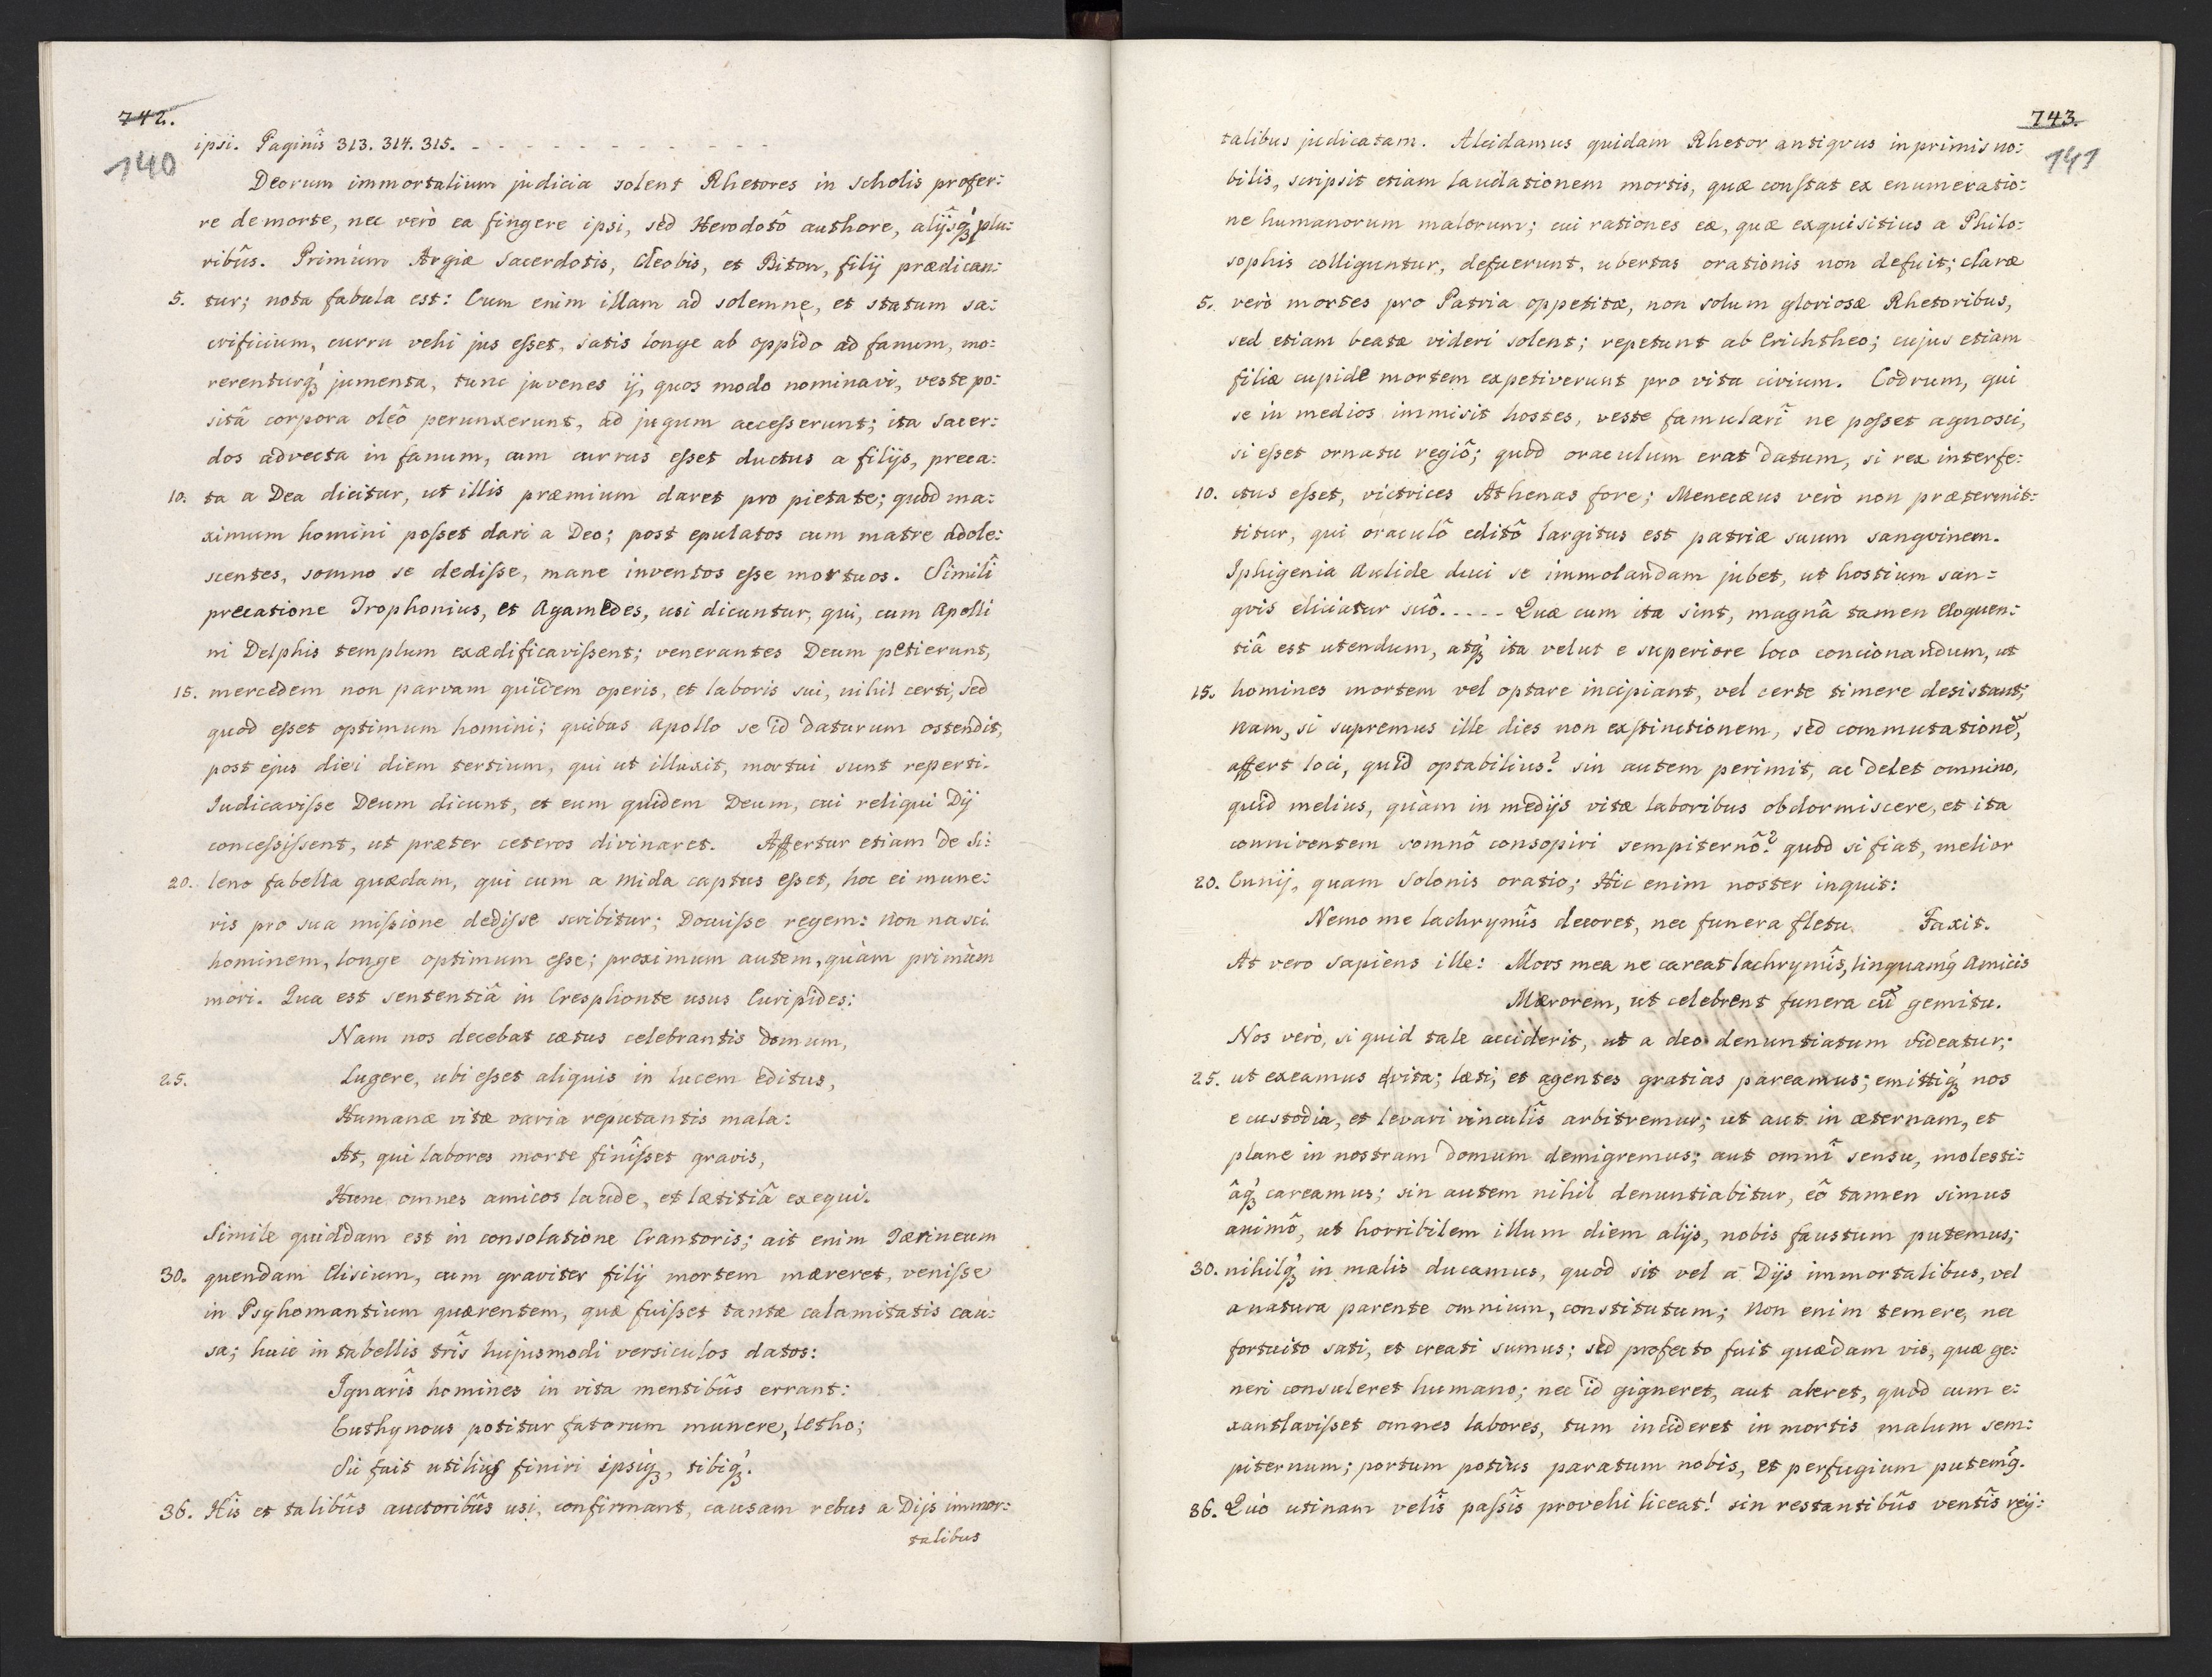 742.
140
ipsi. Paginîs 313. 314. 315. - - - - - - - - - - - -
Deorum immortalium judicia solent Rhetores in scholis profer:
re de morte, nec verò ea fingere ipsi, sed Herodotô authore, alijsq́; plu:
ribûs. Primùm Argiæ sacerdotis, Cleobis, et Biton, filij prædican:
5. tur; nota fabula est: Cum enim illam ad solemne, et statum sa:
crificium, curru vehi jus eſset, satis longe ab oppido ad fanum, mo:
rerenturq́; jumenta, tunc juvenes ij, quos modo nominavi, veste po:
sitâ corpora oleô perunxerunt, ad jugum acceſserunt; ita sacer:
dos advecta in fanum, cum currus eſset ductus a filijs, preca:
10. ta a Dea dicitur, ut illis præmium daret pro pietate; quod ma:
ximum homini poſset dari a Deo; post epulatos cum matre adole:
scentes, somno se dediſse, mane inventos eſse mortuos. Similî
precatione Trophonius, et Agamedes, usi dicuntur, qui, cum Apolli
ni Delphis templum exædificaviſsent; venerantes Deum petierunt,
15. mercedem non parvam quidem operis, et laboris sui, nihil certi, sed
quod eſset optimum homini; quibus Apollo se id daturum ostendit,
post ejus diei diem tertium, qui ut illuxit, mortui sunt reperti.
Iudicaviſse Deum dicunt, et eum quidem Deum, cui reliqui Dij
conceſsiſsent, ut præter ceteros divinaret. Affertur etiam de Si:
20. leno fabella quædam, qui cum a Mida captus eſset, hoc ei mune:
ris pro sua miſsione dediſse scribitur; Docuiſse regem: non nasci
hominem, longe optimum eſse; proximum autem, quàm primùm
mori. Qua est sententiâ in Cresphonte usus Euripides:
Nam nos decebat cœtus celebrantis domum,
25. Lugere, ubi eſset aliquis in lucem editus,
Humanæ vitæ varia reputantis mala:
At, qui labores morte finîſset gravis,
Hunc omnes amicos laude, et lætitiâ exequi.
Simile quiddam est in consolatione Crantoris; ait enim Tærineum
30. quendam Elisium, cum graviter filij mortem mæreret, veniſse
in Psyhomantium quærentem, quæ fuiſset tantæ calamitatis cau:
sa; huic in tabellis trîs hujusmodi versiculos datos:
Ignarîs homines in vita mentibûs errant:
Euthynous potitur fatorum munere, letho;
Sic fuit utilius finiri ipsiq́;, tibiq́;.
36. Hîs et talibûs auctoribûs usi, confirmant, causam rebus a Dijs immor:
talibus
743.
141
talibus judicatam. Alcidamus quidam Rhetor antiqvus inprimis no:
bilis, scripsit etiam laudationem mortis, quæ conſtat ex enumeratio:
ne humanorum malorum; cui rationes eæ, quæ exquisitius a Philo:
sophis colliguntur, defuerunt, ubertas orationis non defuit; claræ
5. verò mortes pro Patria oppetitæ, non solum gloriosæ Rhetoribus,
sed etiam beatæ videri solent; repetunt ab Erichtheo; cujus etiam
filiæ cupide mortem expetiverunt pro vita civium. Codrum, qui
se in medios immisit hostes, veste famularî ne poſset agnosci,
si eſset ornatu regiô; quòd oraculum erat datum, si rex interfe:
10. ctus eſset, victrices Athenas fore; Menecæus verò non prætermit:
titur, qui oraculô editô largitus est patriæ suum sangvinem.
Iphigenia Aulide duci se immolandam jubet, ut hostium san=
gvis eliciatur suô. - - - - Quæ cum ita sint, magnâ tamen eloquen:
tiâ est utendum, atq́; ita velut e superiore loco concionandum, ut
15. homines mortem vel optare incipiant, vel certe timere desistant;
nam, si supremus ille dies non exſtinctionem, sed commutatione͂,
affert loci, quid optabilius? sin autem perimit, ac delet omnino,
quid melius, quàm in medijs vitæ laboribus obdormiscere, et ita
conniventem somnô consopiri sempiternô? quod si fiat, melior
20. Ennij, quam Solonis oratio; Hic enim noster inquit:
Nemo me lachrymîs decoret, nec funera fletu. Faxit.
At vero sapiens ille: Mors mea ne careat lachrymîs, linquamq́; Amicis
Mærorem, ut celebrent funera cu͂ gemitu.
Nos verò, si quid tale acciderit, ut a deo denuntiatum videatur;
25. ut exeamus e vita; læti, et agentes gratias pareamus; emittiq́; nos
e custodia, et levari vinculîs arbitremur; ut aut in æternam, et
plane in nostram domum demigremus; aut omnî sensu, molesti:
âq́; careamus; sin autem nihil denuntiabitur, eô tamen simus
animô, ut horribilem illum diem alijs, nobis faustum putemus;
30. nihilq́; in malis ducamus, quod sit vel a Dijs immortalibus, vel
a natura parente omnium, constitutum; Non enim temere, nec
fortuito sati, et creati sumus; sed profecto fuit quædam vis, quæ ge:
neri consuleret humano; nec id gigneret, aut aleret, quod cum e:
xantlaviſset omnes labores, tum incideret in mortis malum sem:
piternum; portum potiùs paratum nobis, et perfugium putemq́.
36. Quò utinam velîs paſsîs provehi liceat! sin restantibûs ventîs reij: